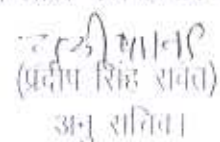 (प्रदीप सिंह रावत)
अनु सचिव।